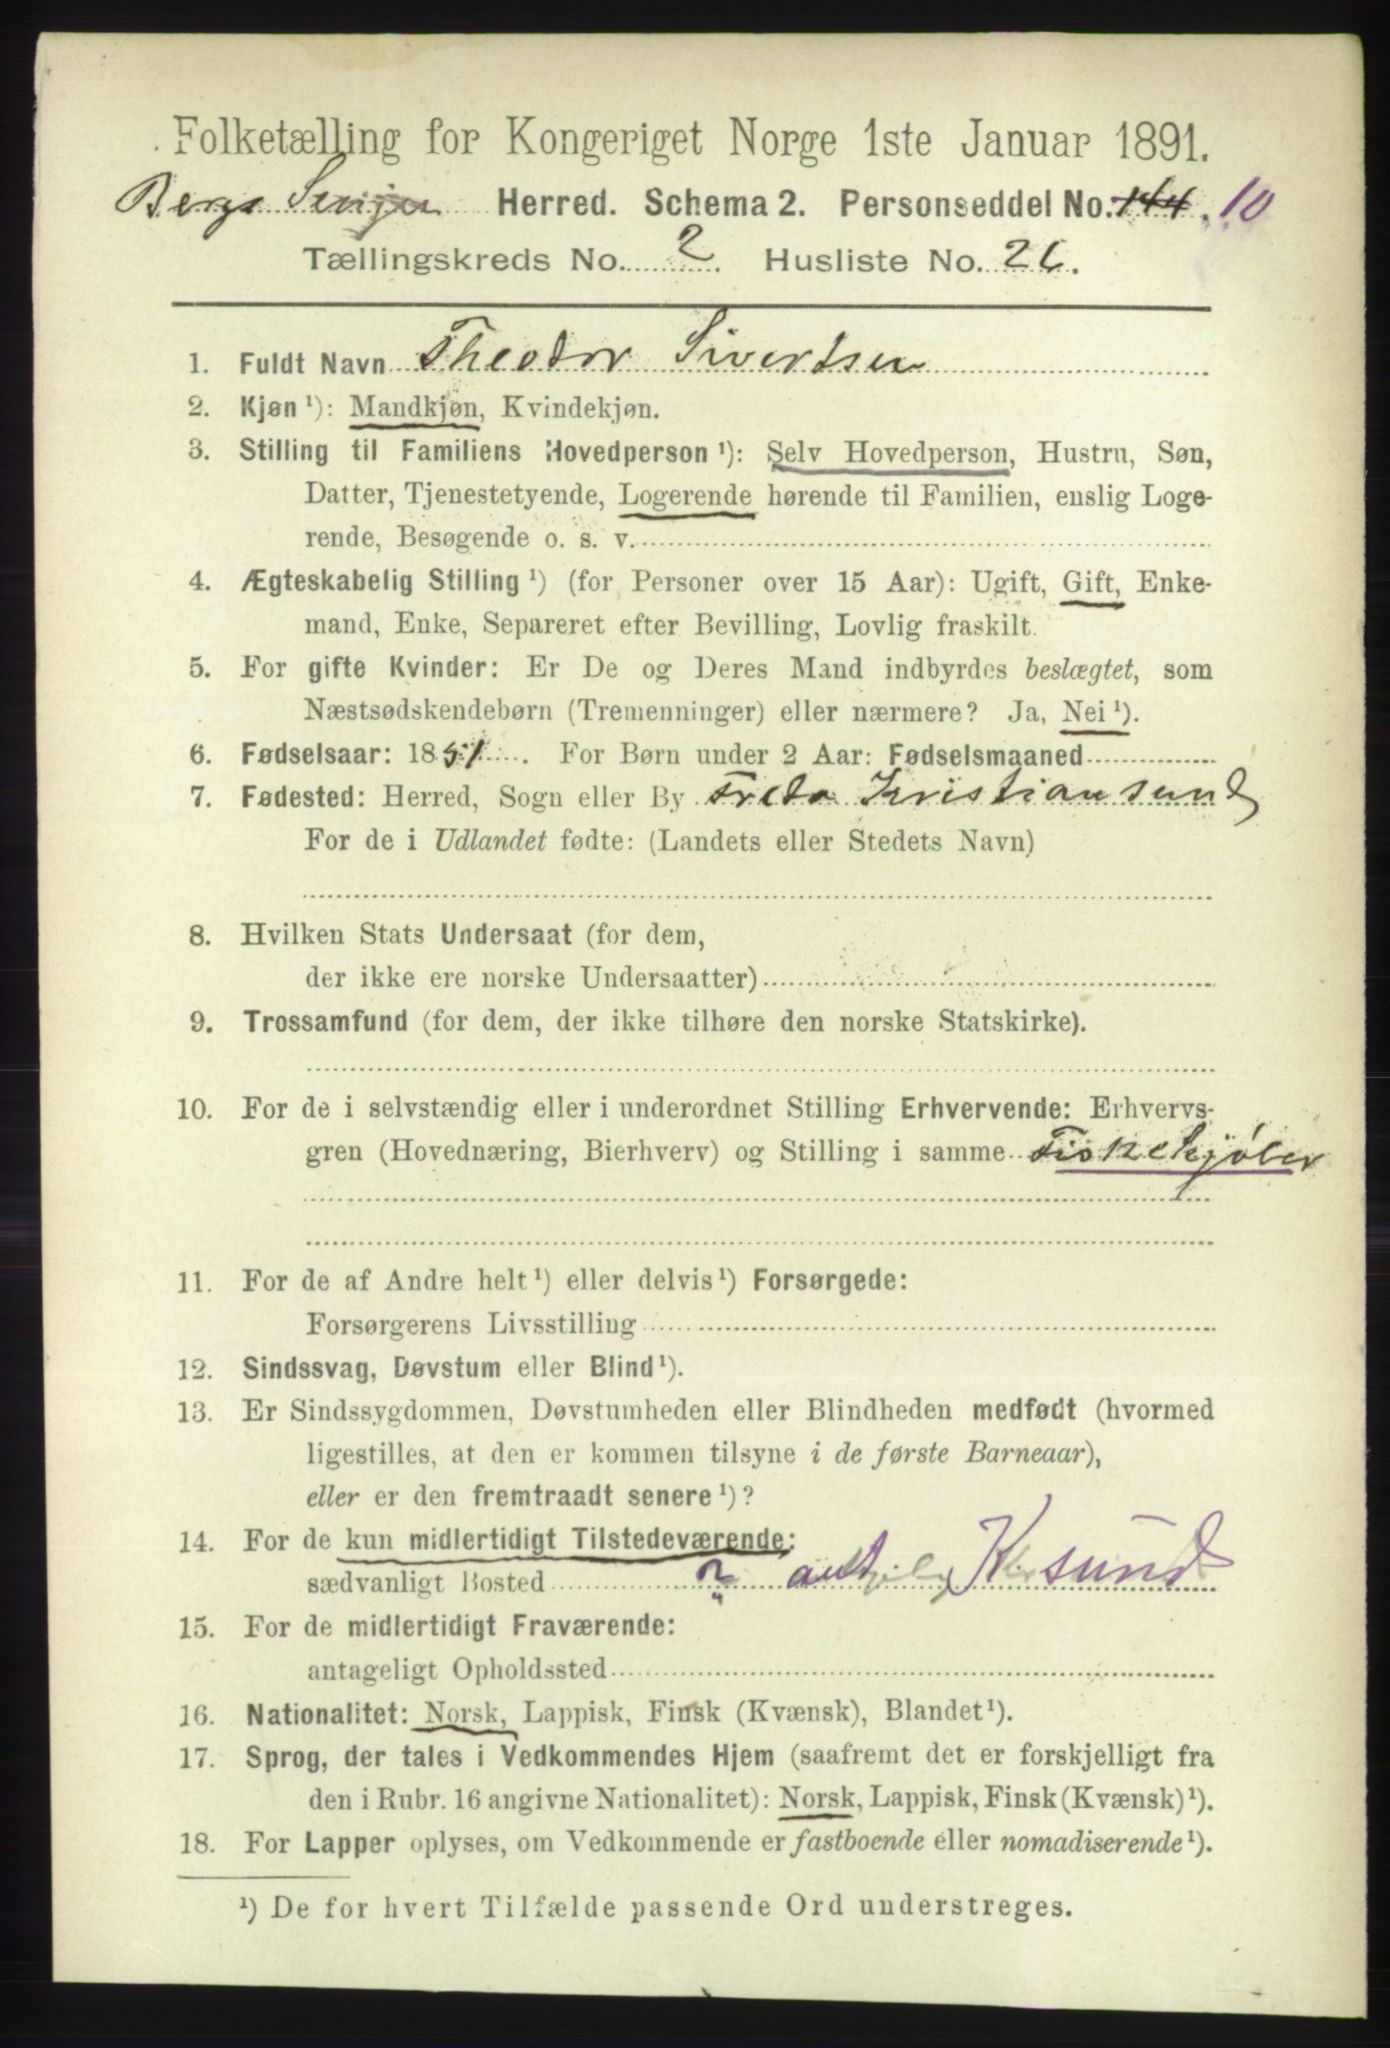 Folketælling for Kongeriget Norge 1ste Januar 1891.
Bergs Senjen Herred. Schema 2. Personseddel No. 144. 10
Tællingskreds No. 2. Husliste No. 26.
1. Fuldt Navn Theodor Sivertsen
2. Kjøn ¹): Mandkjøn, Kvindekjøn.
3. Stilling til Familiens Hovedperson ¹): Selv Hovedperson, Hustru, Søn,
Datter, Tjenestetyende, Logerende hørende til Familien, enslig Loge-
rende, Besøgende o. s. v.
4. Ægteskabelig Stilling ¹) (for Personer over 15 Aar): Ugift, Gift, Enke-
mand, Enke, Separeret efter Bevilling, Lovlig fraskilt.
5. For gifte Kvinder: Er De og Deres Mand indbyrdes beslægtet, som
Næstsødskendebørn (Tremenninger) eller nærmere? Ja, Nei ¹).
6. Fødselsaar: 1851. For Børn under 2 Aar: Fødselsmaaned
7. Fødested: Herred, Sogn eller By Fredø Kristiansund
For de i Udlandet fødte: (Landets eller Stedets Navn)
8. Hvilken Stats Undersaat (for dem,
der ikke ere norske Undersaatter)
9. Trossamfund (for dem, der ikke tilhøre den norske Statskirke).
10. For de i selvstændig eller i underordnet Stilling Erhvervende: Erhvervs-
gren (Hovednæring, Bierhverv) og Stilling i samme Fiskekjøber
11. For de af Andre helt ¹) eller delvis ¹) Forsørgede:
Forsørgerens Livsstilling
12. Sindssvag, Døvstum eller Blind ¹).
13. Er Sindssygdommen, Døvstumheden eller Blindheden medfødt (hvormed
ligestilles, at den er kommen tilsyne i de første Barneaar),
eller er den fremtraadt senere ¹)?
14. For de kun midlertidigt Tilstedeværende:
sædvanligt Bosted ? ant Krsund
15. For de midlertidigt Fraværende:
antageligt Opholdssted
16. Nationalitet: Norsk, Lappisk, Finsk (Kvænsk), Blandet ¹).
17. Sprog, der tales i Vedkommendes Hjem (saafremt det er forskjelligt fra
den i Rubr. 16 angivne Nationalitet): Norsk, Lappisk, Finsk (Kvænsk) ¹).
18. For Lapper oplyses, om Vedkommende er fastboende eller nomadiserende ¹).
¹) De for hvert Tilfælde passende Ord understreges.